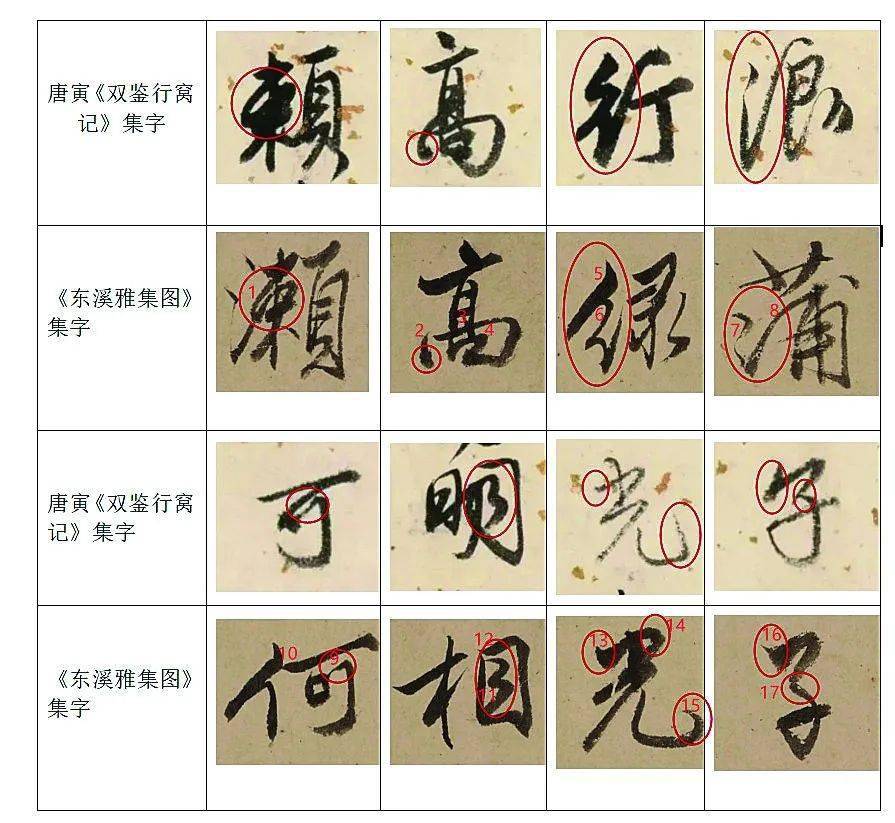 唐寅《双鉴行窝
记》集字
賴 高 行 浪
《东溪雅集图》
集字
瀨 高 綠 蒲
1 2 3 4 5 6 7 8
唐寅《双鉴行窝
记》集字
可 明 光 子
《东溪雅集图》
集字
何 相 光 子
10 9 12 11 13 14 15 16 17